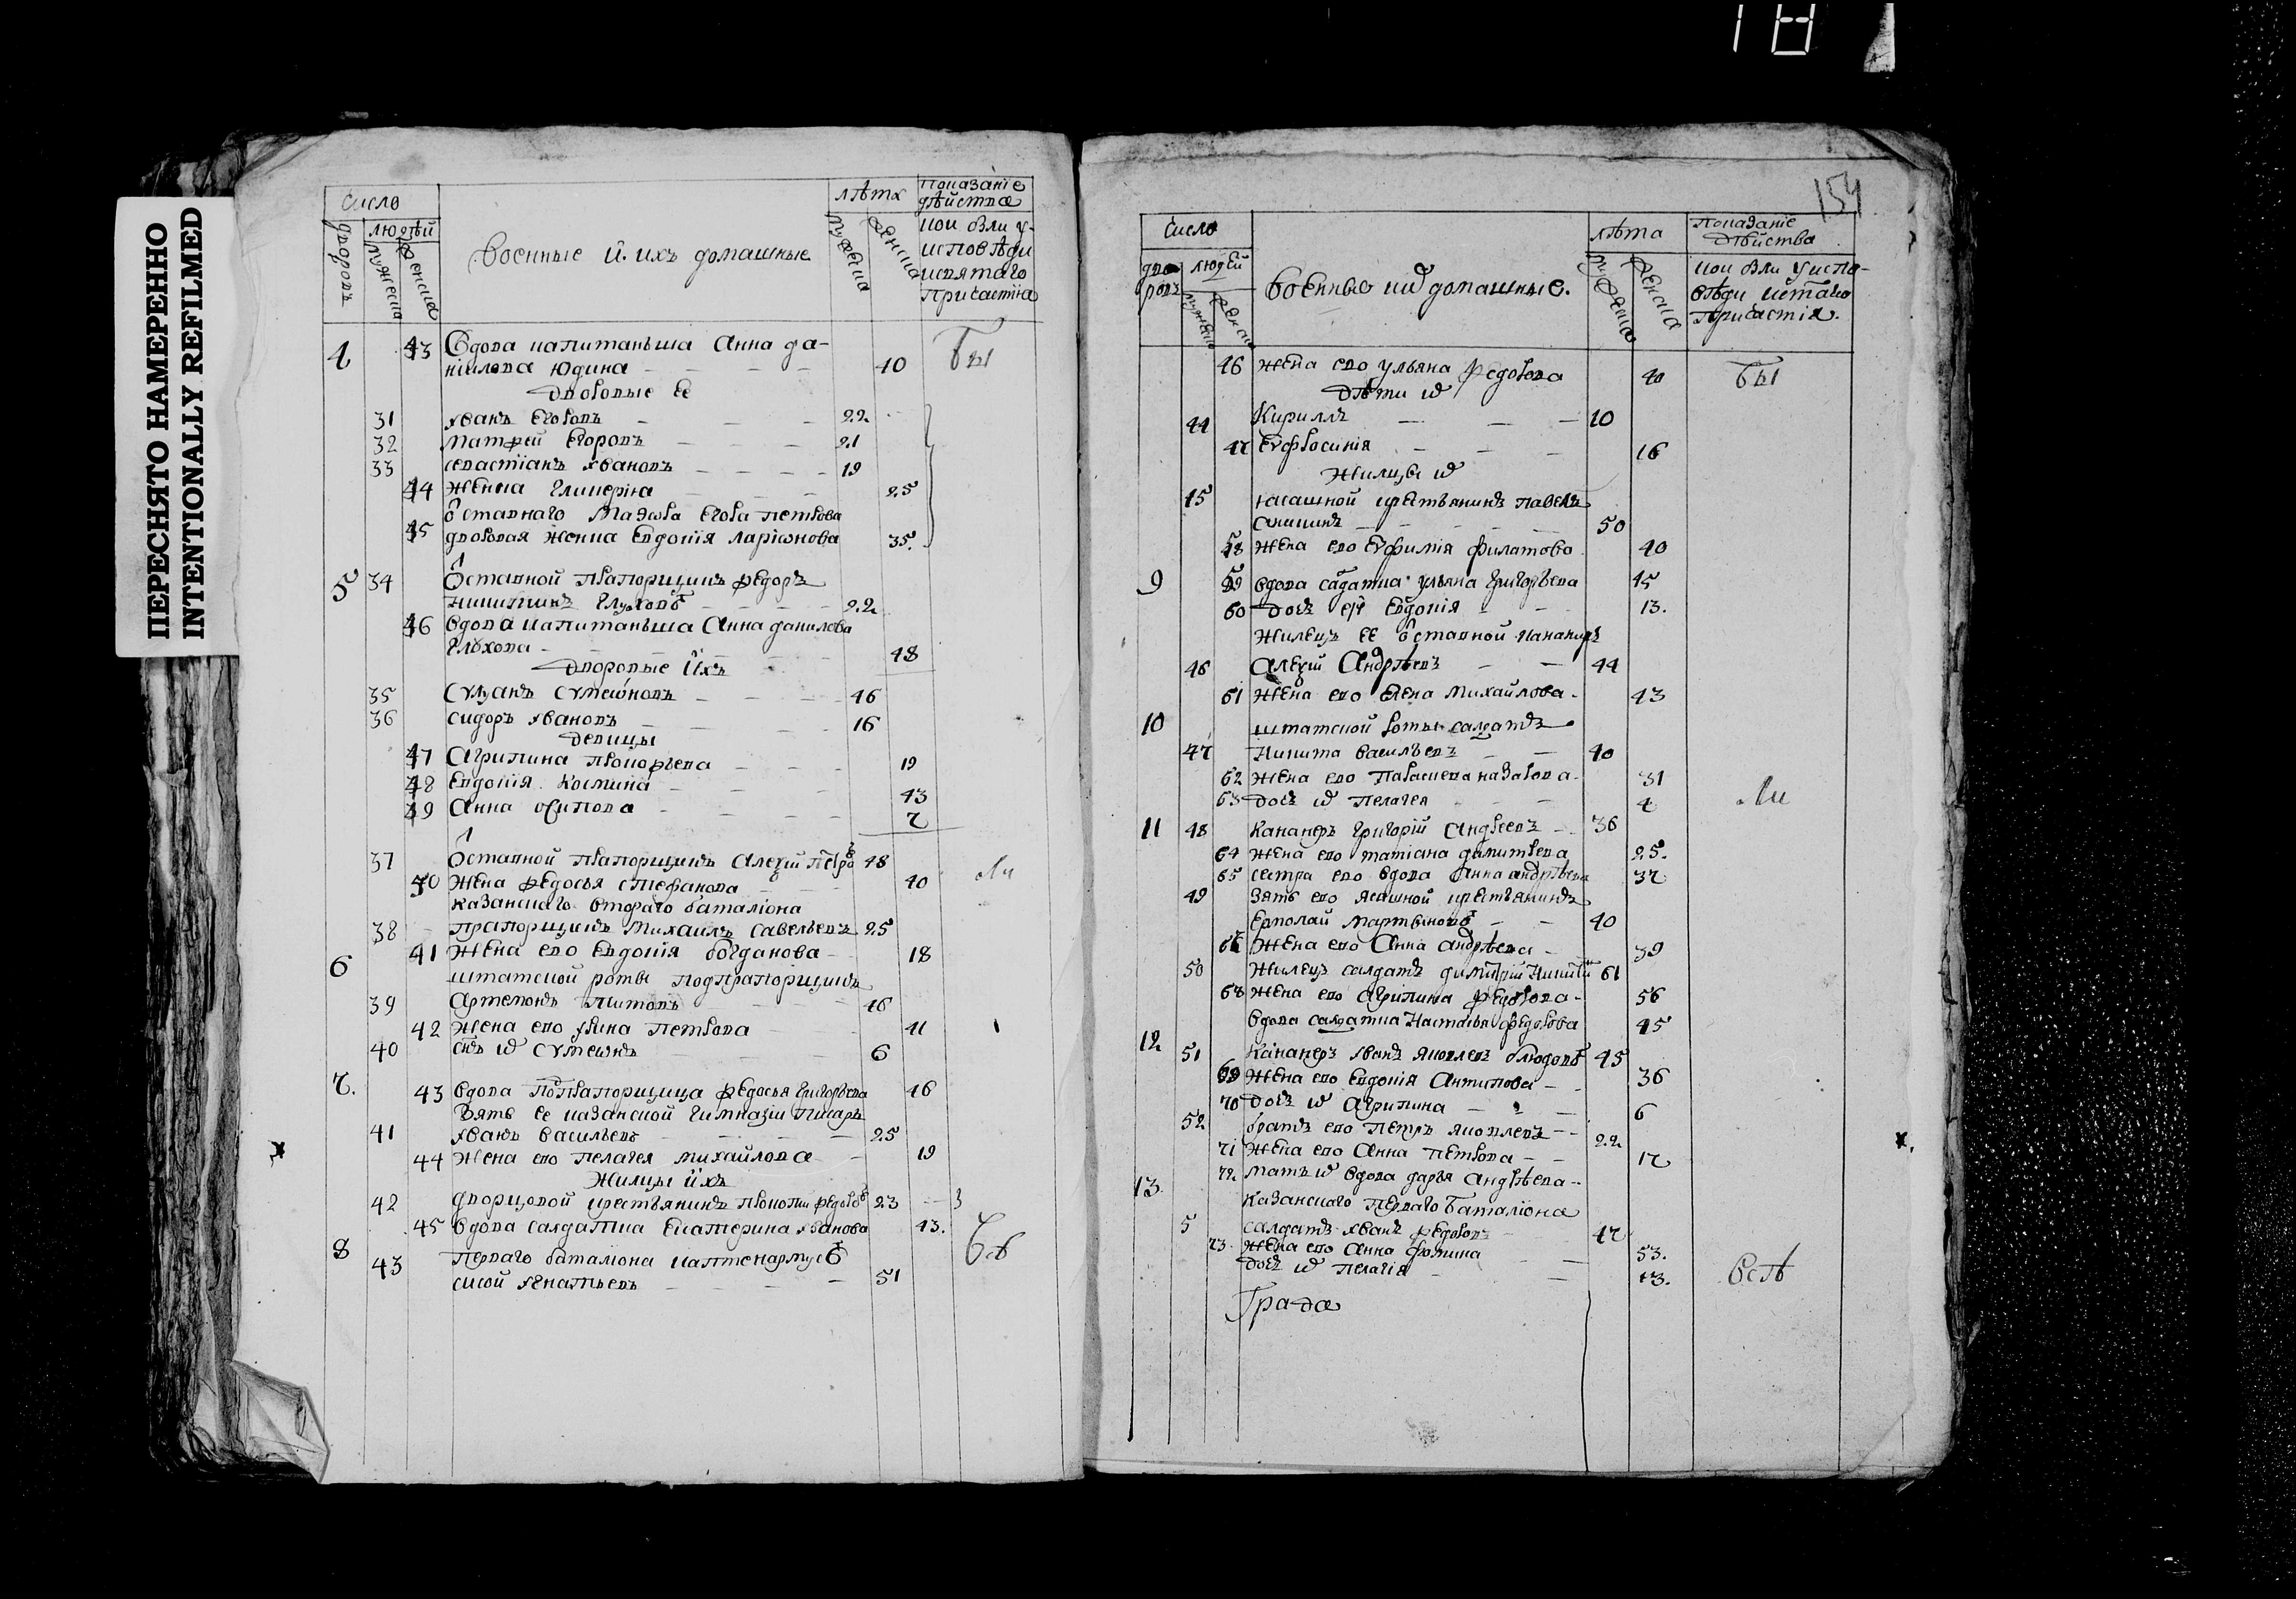 181
ПЕРЕСНЯТО НАМЕРЕННО
INTENTIONALLY REFILMED
число
лѣта
Показанїе
дѣйства
дворовъ
людѣй
мужеска
женска
военные и ихъ домашные
мужеска
женска
кои были у
исповѣди
исвятаго
Причастїя
4 43 Вдова капитанъша Анна да-
нилова Юдина 40 Бы
Дворовые Ее
31 Иванъ Егоровъ 22
32 Матфей Егоровъ 21
33 севастїанъ Ивановъ 19
44 женка Гликерїа 25
отставнаго Маэора Егора петрова
45 дворовая женка Евдокїя ларїонова 35.
5 34 отставной прапорщикъ федоръ
никитинъ Глуховъ 22
46 вдова капитанъша Анна данилова
Глухова 48
Дворовые ихъ
35 Сумеоновъ 46
36 сидоръ Ивановъ 16
Девицы
47 Агрипина прокофьева 19
48 Евдокїя Космина 43
49 Анна осипова 7
37 отставной прапорщикъ Алеѯїй Петровъ 48
50 жена федосья стефанова 40 ли
казанскаго втораго баталїона
38 прапорщикъ Михаилъ Савельевъ 25
6 41 жена ево Евдокїя богданова 18
штатской роты подпрапорщикъ
39 Артемонъ Титовъ 46
42 жена ево Ирина петрова 41
40 снъ их Сумеонъ 6
7. 43 вдова подпрапорщица федосья григорьева 46
Зять ее казанской гимназїи писарь
41 Иванъ васильевъ 25
44 жена ево пелагея михайлова 19
Жилцы ихъ
42 дворцовой крестьянинъ прокопїи федоровъ 23
45 вдова салдатка Екатерина Иванова 43.
8 43 перваго баталїона каптенармусъ
сисой Игнатьевъ 51
154
число
лѣта
Показанїе
Дѣйства
дворовъ
людей
мужеска
женска
военные их домашные.
мужеска
женска
кои были у испо-
вѣди истаго
Причастїя.
46 жена ево ульяна федорова 40 бы
Дѣти их
44 Кириллъ 10
47 Еуфросинїя 16
Жилцы их
45 ясашной крестьянинъ павелъ
50
58 жена ево Еуфимїя филатова 40
9 59 вдова салдатка ульяна григорьева 45
60 дочь ей Евдокїя 13.
жилецъ ее отставной кананиръ
46 Алеѯїй Андрѣевъ 44
61 жена ево Елена михайлова 43
10 штатской роты салдатъ
47 Никита васильевъ 40
62 жена ево Парасковья назарова 31
63 дочь их пелагея 4 ли
11 48 Кананеръ григорїй Андреевъ 36
64 жена ево татїана димитрева 25.
65 сестра ево вдова Анна андрѣева 37
49 Зять ево ясашной крестьянинъ
Ермолай мартыновъ 40
66 жена ево Анна андрѣева 39
50 жилецъ салдатъ димитрїй 61
68 жена ево Агрипина федорова 56
вдова салдатка Настасья федорова 45
12 51 Кананеръ Иванъ яковлевъ блюдовъ 45
69 жена ево Евдокїя Антипова 36
70 дочь их Агрипина 6
52 братъ ево петръ яковлевъ 22
71 жена ево Анна петрова 17
72 мать их вдова дарья андрѣева
13 Казанскаго перваго баталїона
5 салдатъ Иванъ федоровъ 47
73 жена ево Анна фомина 53.
дочь их пелагїя 13. всѣ
Града